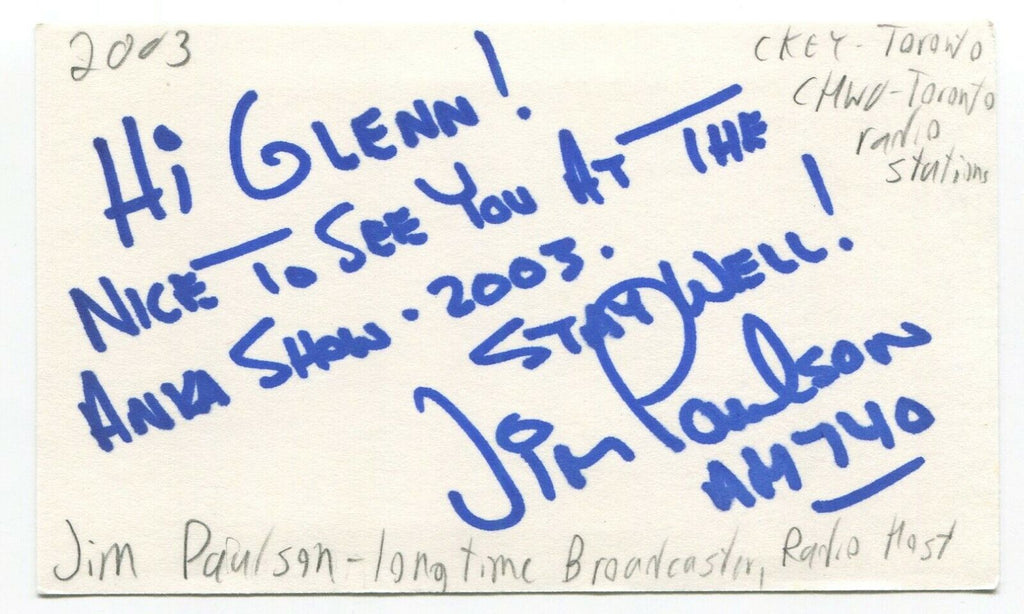 2003
CKEY - Toronto
CHWO - Toronto
radio
stations
Hi GLENN!
NICE TO SEE YOU AT THE
ANKA SHOW. 2003.
STAY WELL!
Jim Paulson
AM740
Jim Paulson - longtime Broadcaster, Radio Host